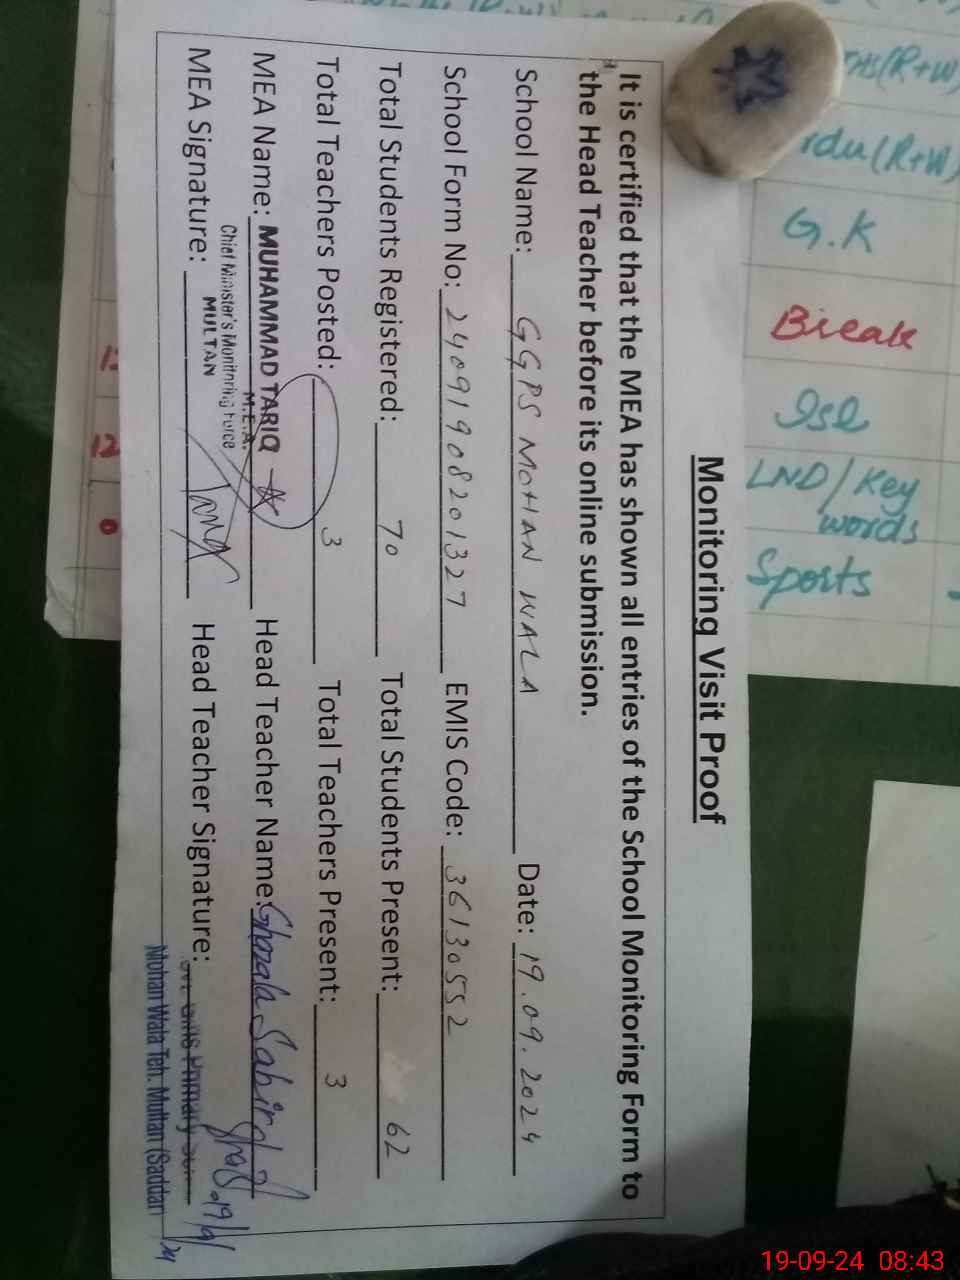 Monitoring Visit Proof
It is certified that the MEA has shown all entries of the School Monitoring Form to
the Head Teacher before its online submission.
School Name: GGPS MOHAN WALA Date: 19.09.2024
School Form No: 24091908201327 EMIS Code: 36130552
Total Students Registered: 70 Total Students Present: 62
Total Teachers Posted: 3 Total Teachers Present: 3
MEA Name: MUHAMMAD TARIQ Head Teacher Name: Ghazala Sabir
M.E.A.
Chief Minister's Monitoring Force
MULTAN
MEA Signature: Tariq Head Teacher Signature:
Mohan Wala Teh. Multan (Saddar)
(R+W)
rdu (R+W)
G.K
Break
Isl
LND/Key
words
Sports
12
0
19-09-24 08:43